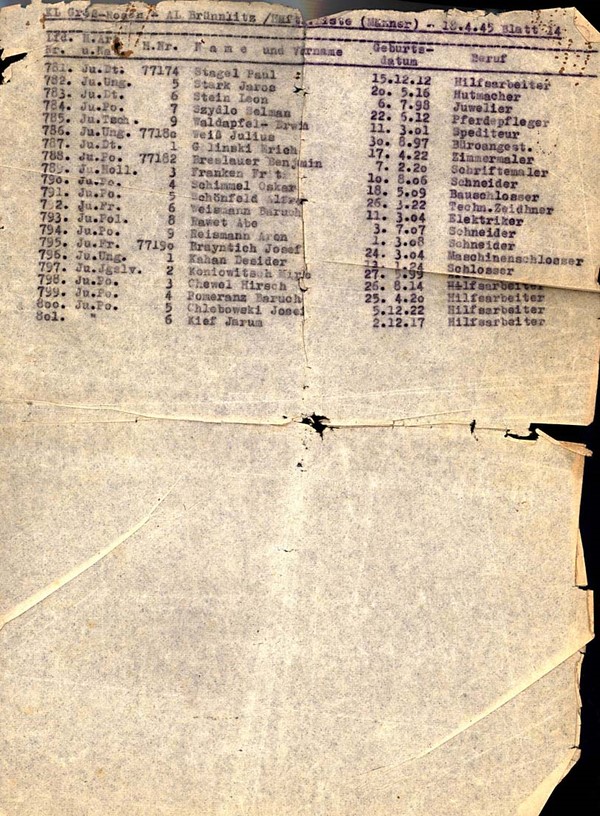 KL Groß-Rosen - AL Brünnlitz /Häftlingsliste (Männer) - 18.4.45 Blatt 14
Lfd. H.Art H.Nr. Name und Vorname Geburts- Beruf
Nr. u.Na. datum
781. Ju.Dt. 77174 Stagel Paul 15.12.12 Hilfsarbeiter
782. Ju.Ung. 5 Stark Jaros 2o. 5.16 Hutmacher
783. Ju.Dt. 6 Stein Leon 6. 7.98 Juwelier
784. Ju.Po. 7 Szydlo Helman 22. 6.12 Pferdepfleger
785. Ju.Tsch. 9 Waldapfel- Erwin 11. 3.o1 Spediteur
786. Ju.Ung. 7718o Weiß Julius 3o. 8.97 Büroangest.
787. Ju.Dt. 1 Glinski Erich 17. 4.22 Zimmermaler
788. Ju.Po. 77182 Breslauer Benjamin 7. 2.2o Schriftemaler
789. Ju.Holl. 3 Franken Fritz 1o. 8.o6 Schneider
79o. Ju.Po. 4 Schimmel Oskar 18. 5.o9 Bauschlosser
791. Ju.Po. 5 Schönfeld Alfred 26. 3.22 Techn.Zeidhner
792. Ju.Fr. 6 Weismann Baruch 11. 3.o4 Elektriker
793. Ju.Pol. 8 Nawet Abe 3. 7.o7 Schneider
794. Ju.Po. 9 Reismann Aron 1. 3.o8 Schneider
795. Ju.Fr. 7719o Brayntich Josef 24. 3.o4 Maschinenschlosser
796. Ju.Ung. 1 Kahan Desider Schlosser
797. Ju.Jgslv. 2 Koniowitsch Mirko 27.
798. Ju.Po. 3 Chewel Hirsch 26. 8.14 Hilfsarbeiter
799. Ju.Po. 4 Pomeranz Baruch 25. 4.2o Hilfsarbeiter
8oo. Ju.Po. 5 Chlebowski Josef 5.12.22 Hilfsarbeiter
8o1. " 6 Kief Jarum 2.12.17 Hilfsarbeiter